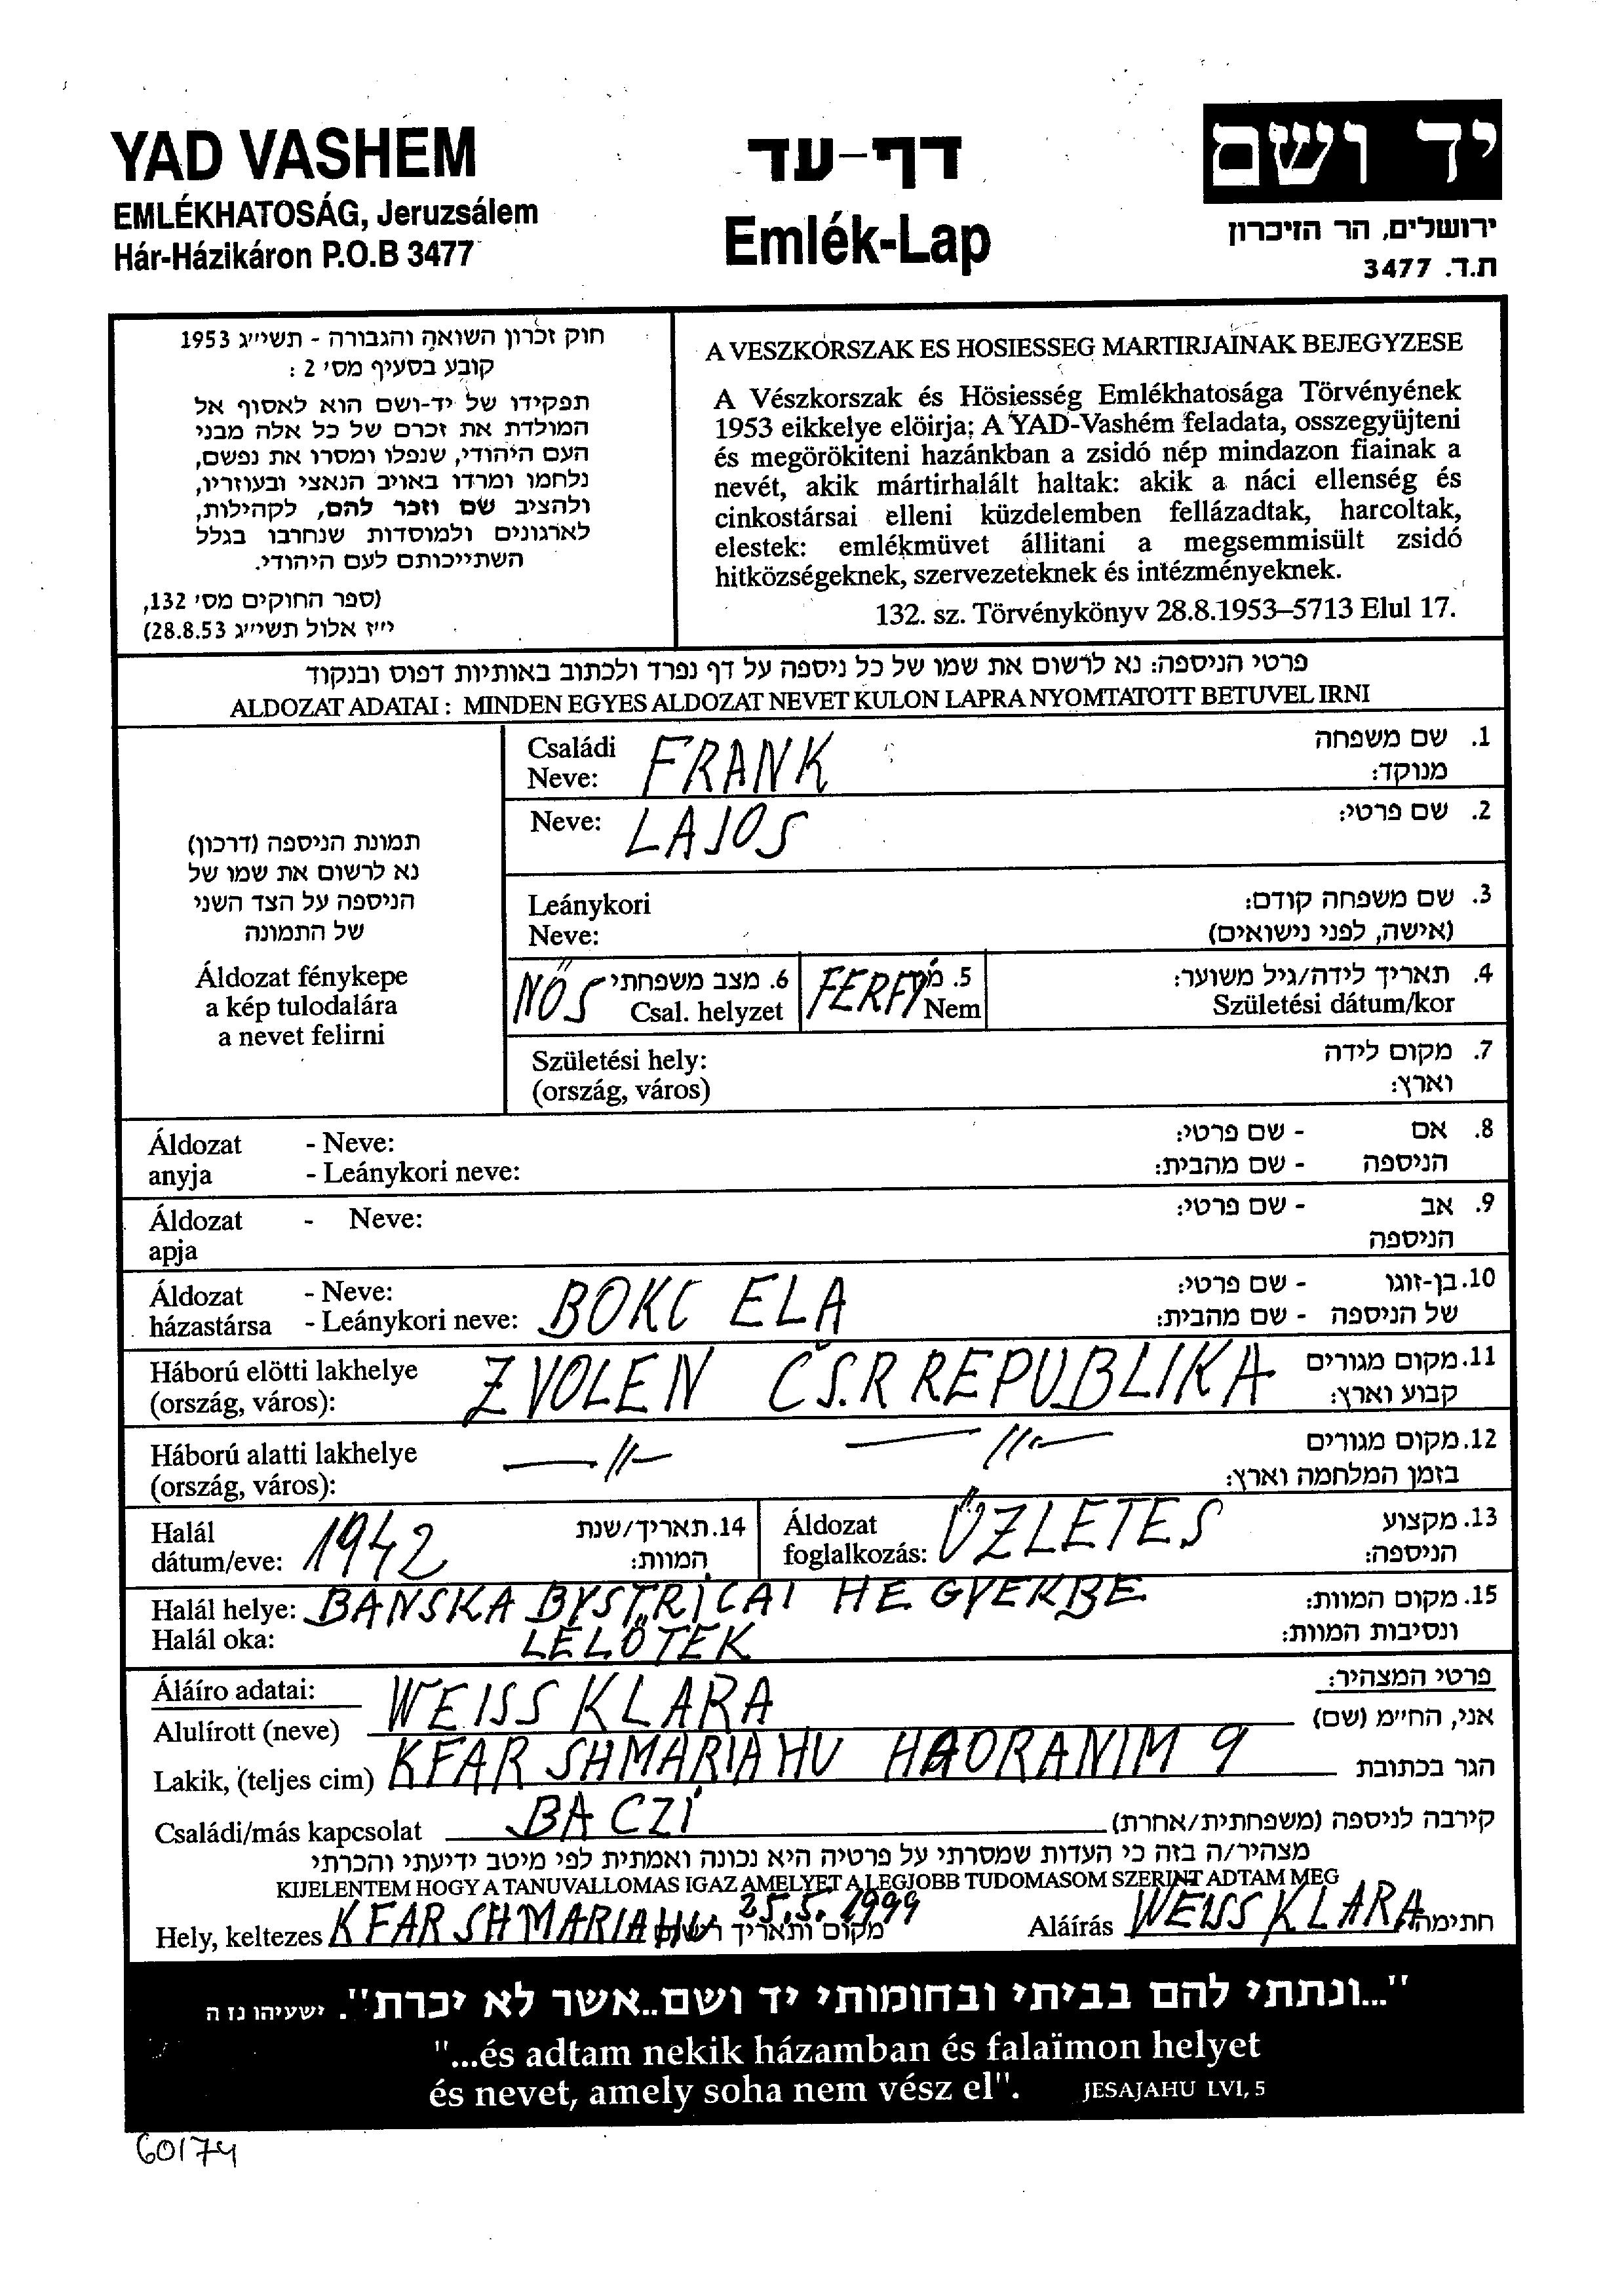 YAD VASHEM
EMLÉKHATOSÁG, Jeruzsálem
Hár-Házikáron P.O.B 3477
דף-עד
Emlék-Lap
יד ושם
ירושלים, הר הזיכרון
ת.ד. 3477
חוק זכרון השואה והגבורה - תשי״ג 1953
קובע בסעיף מס׳ 2 :
תפקידו של יד-ושם הוא לאסוף אל
המולדת את זכרם של כל אלה מבני
העם היהודי, שנפלו ומסרו את נפשם,
נלחמו ומרדו באויב הנאצי ובעוזריו,
ולהציב שם וזכר להם, לקהילות,
לארגונים ולמוסדות שנחרבו בגלל
השתייכותם לעם היהודי.
(ספר החוקים מס׳ 132,
י״ז אלול תשי״ג 28.8.53)
A VESZKORSZAK ES HOSIESSEG MARTIRJAINAK BEJEGYZESE
A Vészkorszak és Hösiesség Emlékhatosága Törvényének
1953 eikkelye elöirja; A YAD-Vashém feladata, osszegyüjteni
és megörökiteni hazánkban a zsidó nép mindazon fiainak a
nevét, akik mártirhalált haltak: akik a náci ellenség és
cinkostársai elleni küzdelemben fellázadtak, harcoltak,
elestek: emlékmüvet állitani a megsemmisült zsidó
hitközségeknek, szervezeteknek és intézményeknek.
132. sz. Törvénykönyv 28.8.1953–5713 Elul 17.
פרטי הניספה: נא לרשום את שמו של כל ניספה על דף נפרד ולכתוב באותיות דפוס ובנקוד
ALDOZAT ADATAI : MINDEN EGYES ALDOZAT NEVET KULON LAPRA NYOMTATOTT BETUVEL IRNI
תמונת הניספה (דרכון)
נא לרשום את שמו של
הניספה על הצד השני
של התמונה
Áldozat fénykepe
a kép tulodalára
a nevet felirni
Családi
Neve: FRANK
1. שם משפחה
מנוקד:
Neve: LAJOS
2. שם פרטי:
Leánykori
Neve:
3. שם משפחה קודם:
(אישה, לפני נישואים)
NŐS 6. מצב משפחתי
Csal. helyzet
FERFY 5. מין
Nem
4. תאריך לידה/גיל משוער:
Születési dátum/kor
Születési hely:
(ország, város)
7. מקום לידה
וארץ:
Áldozat - Neve:
anyja - Leánykori neve:
8. אם - שם פרטי:
הניספה - שם מהבית:
Áldozat - Neve:
apja
9. אב - שם פרטי:
הניספה
Áldozat - Neve:
házastársa - Leánykori neve: BOKC ELA
10. בן-זוגו - שם פרטי:
של הניספה - שם מהבית:
Háború elötti lakhelye
(ország, város): ZVOLEN ČS.R REPUBLIKA
11. מקום מגורים
קבוע וארץ:
Háború alatti lakhelye
(ország, város): —〃— —〃—
12. מקום מגורים
בזמן המלחמה וארץ:
Halál
dátum/eve: 1942
14. תאריך/שנת
המוות:
Áldozat
foglalkozás: ÜZLETES
13. מקצוע
הניספה:
Halál helye: BANSKA BYSTRICAI HEGYEKBE
Halál oka: LELŐTEK
15. מקום המוות:
ונסיבות המוות:
Áláíro adatai:
פרטי המצהיר:
Alulírott (neve) WEISS KLARA אני, הח״מ (שם)
Lakik, (teljes cim) KFAR SHMARIAHU HAORANIM 9 הגר בכתובת
Családi/más kapcsolat BACZI קירבה לניספה (משפחתית/אחרת)
מצהיר/ה בזה כי העדות שמסרתי על פרטיה היא נכונה ואמתית לפי מיטב ידיעתי והכרתי
KIJELENTEM HOGY A TANUVALLOMAS IGAZ AMELYET A LEGJOBB TUDOMASOM SZERINT ADTAM MEG
Hely, keltezes KFAR SHMARIAHU 25.5.1999 מקום ותאריך Aláírás WEISS KLARA חתימה
"...ונתתי להם בביתי ובחומותי יד ושם..אשר לא יכרת". ישעיהו נו ה
"...és adtam nekik házamban és falaïmon helyet
és nevet, amely soha nem vész el". JESAJAHU LVI, 5
60174